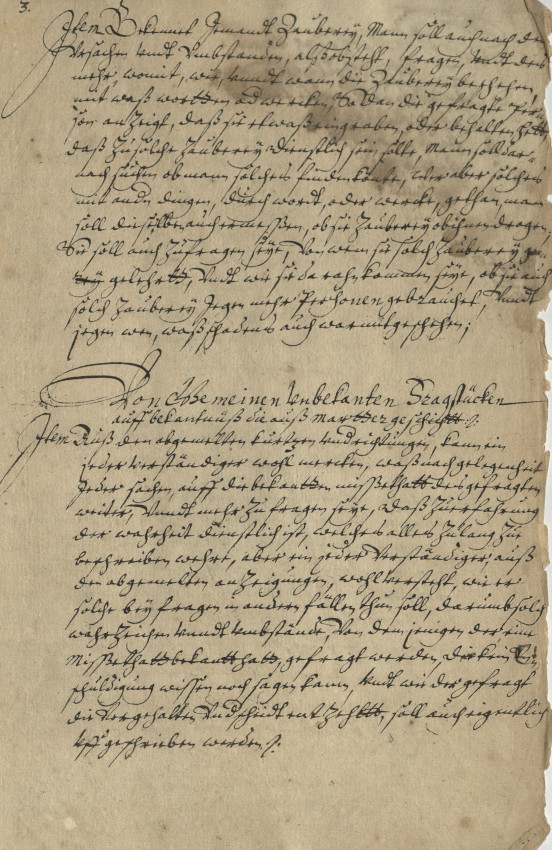 3.
Item Bekennet Jemandt Zauberey, Mann soll auch nach den
Vrsachen Vndt Vmbstenden, alß obsteht, fragen, Vndt des
mehr, womit, wie, Vnndt wann die Zauberey beschehen,
mit waß wortten od wercken, So dan die gefragte Per-
son anZeigt, daß sie etwaß eingraben, oder behalten hette
daß Zu solche Zauberey dienstlich sein solte, Mann soll dar-
nach suchen ob mann solches finden könte, wer aber solches
mit andn dingen, durch wordt, oder wercke, gethan, man
soll dieselben auch ermeßen, ob sie Zauberey ob ihnen dragen,
Sie soll auch Zufragen seye, Von wem sie solch Zauberey ge-
lehrtt, Vndt wie sie da rahn kommen seye, ob sie auch
solch Zauberey Jegen mehr Perschonen gebrauchet, Vnndt
jegen wen, waß schadens auch warmit geschehen;
Von Gemeinen Vnbekanten Fragstücken
auff bekantnuß die auß martter geschicht.
Item Auß den obgemelten kurtzen Vndrichtungen, kann ein
jeder verständiger wohl mercken, waß nach gelegenheit
Jeder sachen, auff die bekantten missethatt des gefragten
weiter, Vnndt mehr Zu fragen seye, daß Zu erfahrung
der warheit dienstlich ist, welches alles Zu lang Zue
beschreiben wehre, aber ein jeder Verständiger, auß
den obgemelten anZeigungen, wohl versteht, wie er
solche bey fragen in andere fällen thun soll, darumb solch
wahrZeichen Vnndt Vmbstände, Von dem jenigen der eine
Missethatt bekantt hatt, gefragt werden, die kein Un-
schuldigung wissen noch sagen kann, Vndt wie der gefragt
die Vorgehalten Vndscheidt ent Zehltt, soll auch eigentlich
Vff geschrieben werden.